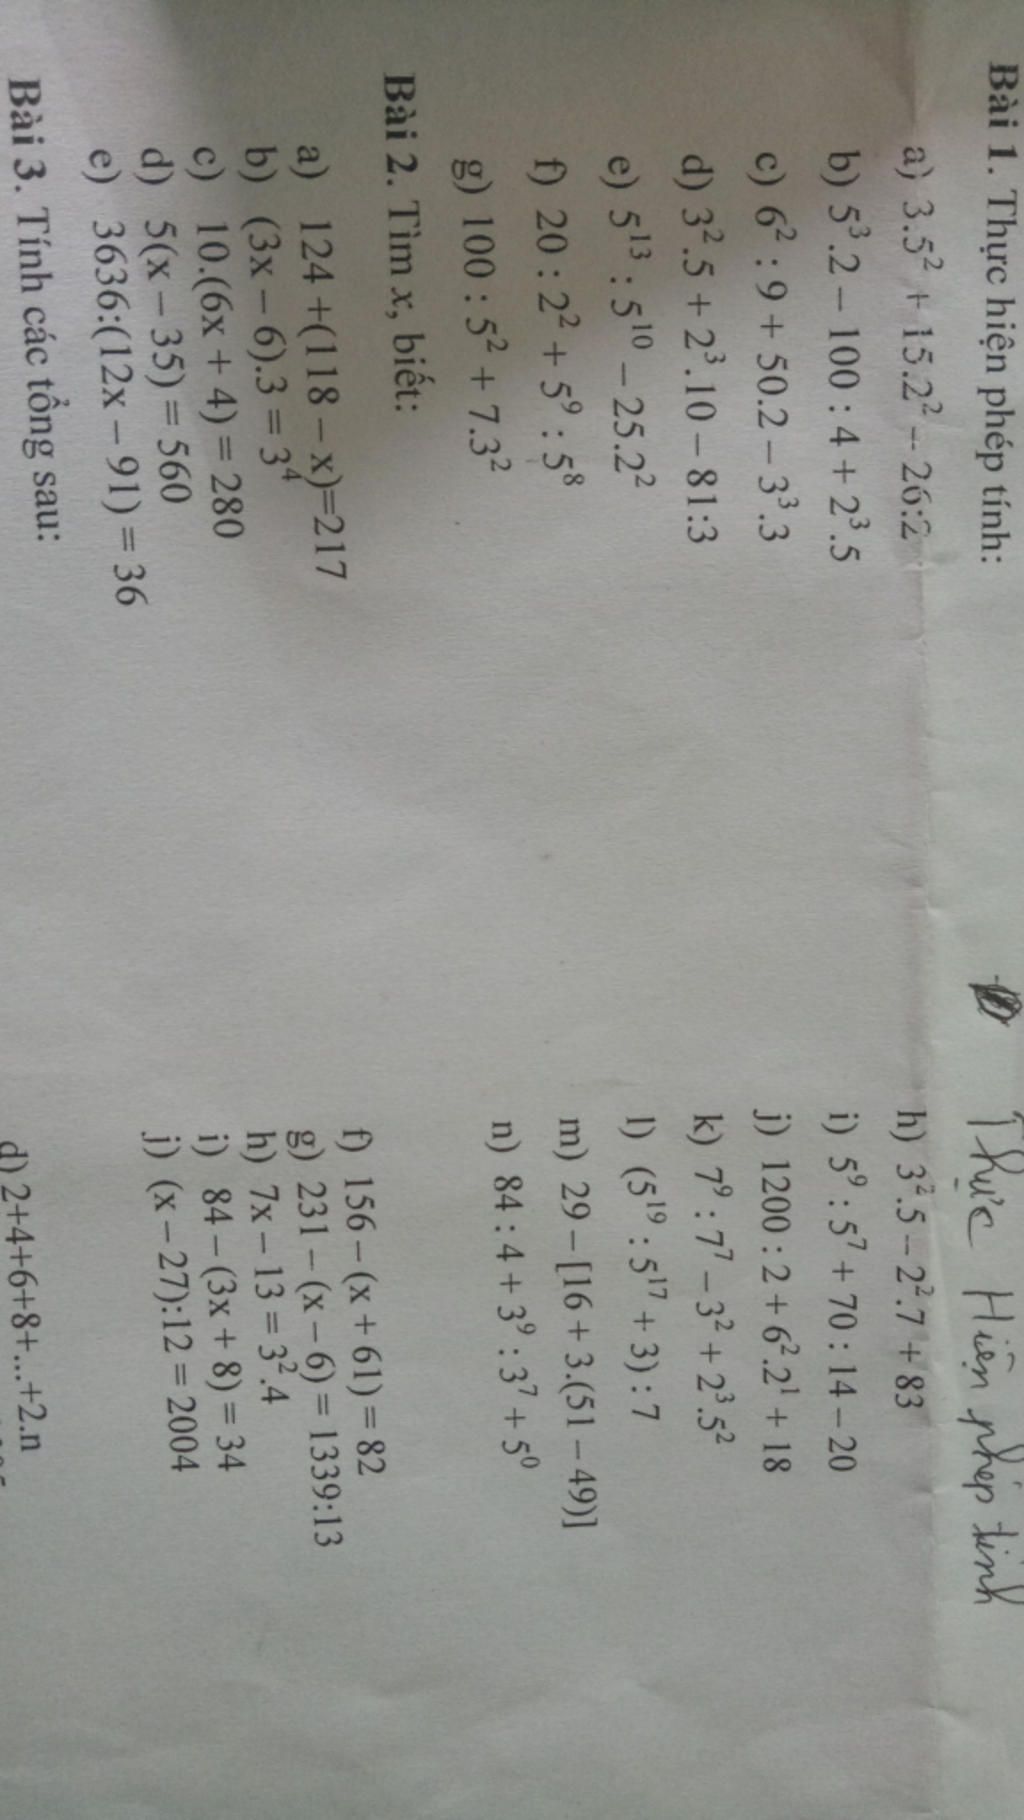 Thực Hiện phép tính
Bài 1. Thực hiện phép tính:
a) 3.5² + 15.2² – 26:2
b) 5³.2 – 100 : 4 + 2³.5
c) 6² : 9 + 50.2 – 3³.3
d) 3².5 + 2³.10 – 81:3
e) 5¹³ : 5¹⁰ – 25.2²
f) 20 : 2² + 5⁹ : 5⁸
g) 100 : 5² + 7.3²
h) 3².5 – 2².7 + 83
i) 5⁹ : 5⁷ + 70 : 14 – 20
j) 1200 : 2 + 6².2¹ + 18
k) 7⁹ : 7⁷ – 3² + 2³.5²
l) (5¹⁹ : 5¹⁷ + 3) : 7
m) 29 – [16 + 3.(51 – 49)]
n) 84 : 4 + 3⁹ : 3⁷ + 5⁰
Bài 2. Tìm x, biết:
a) 124 +(118 – x)=217
b) (3x – 6).3 = 3⁴
c) 10.(6x + 4) = 280
d) 5(x – 35) = 560
e) 3636:(12x – 91) = 36
f) 156 – (x + 61) = 82
g) 231 – (x – 6) = 1339:13
h) 7x – 13 = 3².4
i) 84 – (3x + 8) = 34
j) (x – 27):12 = 2004
Bài 3. Tính các tổng sau:
d) 2+4+6+8+...+2.n